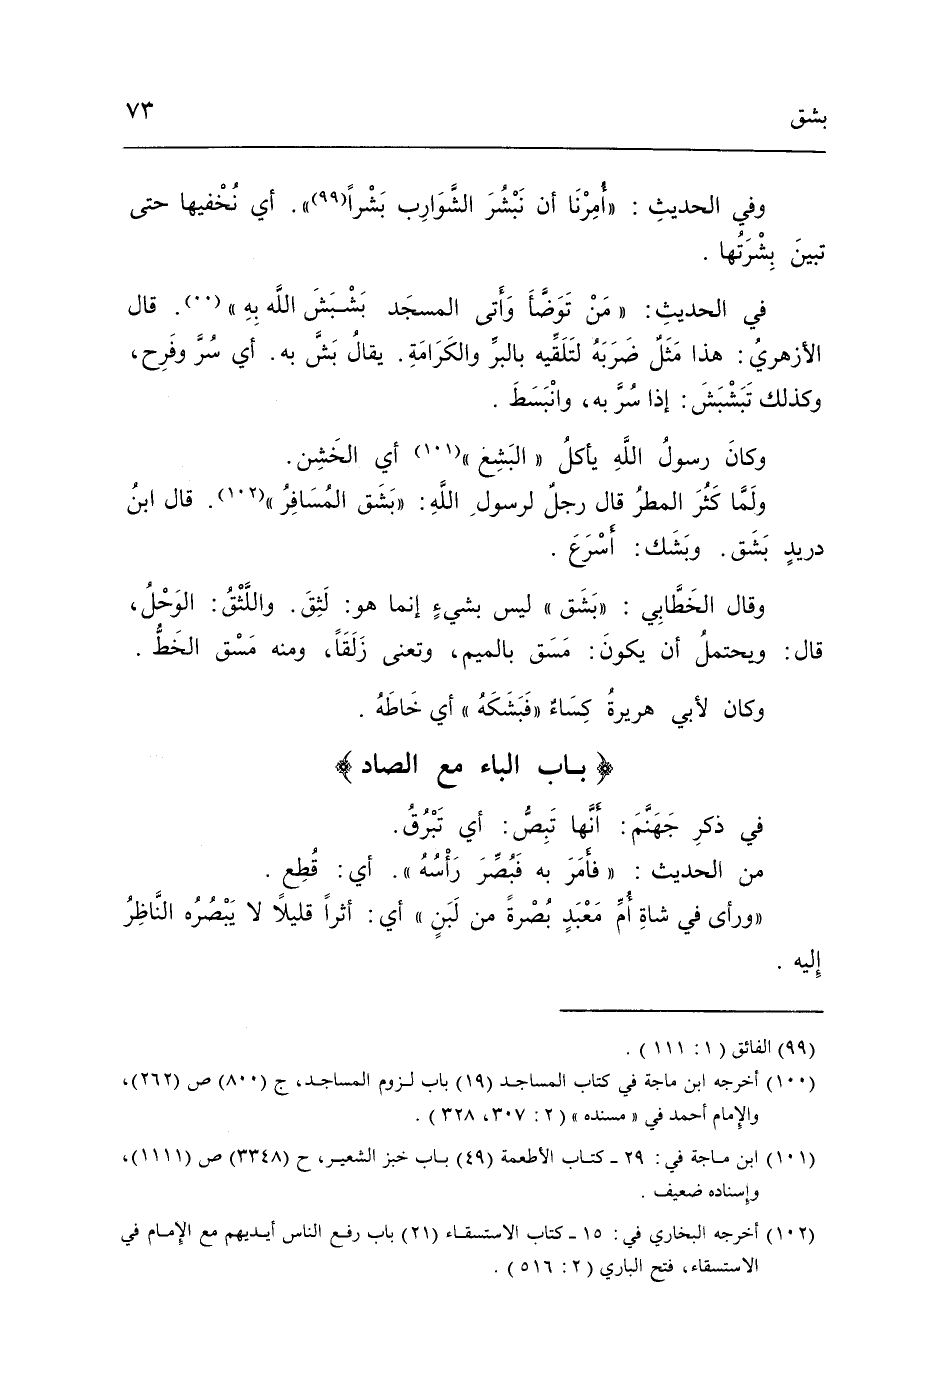 بشق ٧٣
وفي الحديثِ : «أُمِرْنَا أن نَبْشُرَ الشَّوَارِب بَشْراً(٩٩)» . أي نُخْفيها حتى
تبينَ بِشْرَتُها .
في الحديثِ : « مَنْ تَوَضَّأَ وَأَتى المسجَد بَشْبَشَ اللَّه بِهِ » (٠٠). قال
الأزهريُ : هذا مَثَلٌ ضَرَبَهُ لَتَلَقِّيه بالبرِّ والكَرَامَةِ. يقالُ بَشَّ به. أي سُرَّ وفَرِح،
وكذلك تَبَشْبَشَ : إذا سُرَّ به، وانْبَسَطَ .
وكانَ رسولُ اللَّهِ يأكلُ « البَشِعَ »(١٠١) أي الخَشِن.
ولَمَّا كَثُرَ المطرُ قال رجلٌ لرسولِ اللَّهِ : «بَشَق المُسَافِرُ »(١٠٢). قال ابنُ
دريدٍ بَشَق. وبَشَك : أَسْرَعَ .
وقال الخَطَّابِي : «بَشَق » ليس بشيءٍ إنما هو: لَثِقَ. واللَّثْقُ: الوَحْلُ،
قال: ويحتملُ أن يكونَ: مَسَق بالميم، وتعنى زَلَقَاً، ومنه مَسْق الخَطُّ .
وكان لأبي هريرةُ كِسَاءُ «فَبَشَكَهُ » أي خَاطَهُ .
﴿ بـاب الباء مع الصاد ﴾
في ذكرِ جَهَنَّمَ: أَنَّها تَبِصُّ: أي تَبْرُقُ.
من الحديث : « فأَمَرَ به فَبُصِّرَ رَأْسُهُ ». أي: قُطِع .
«ورأى في شاةِ أُمِّ مَعْبَدٍ بُصْرةً من لَبَنٍ » أي: أثراً قليلًا لا يَبْصُرُه النَّاظِرُ
إِليه .
(٩٩) الفائق (١ : ١١١) .
(١٠٠) أخرجه ابن ماجة في كتاب المساجـد (١٩) باب لـزوم المساجـد، ح (٨٠٠) ص (٢٦٢)،
والإِمام أحمد في « مسنده » (٢ : ٣٠٧، ٣٢٨) .
(١٠١) ابن مـاجة في : ٢٩ ـ كتـاب الأطعمة (٤٩) بـاب خبز الشعيـر، ح (٣٣٤٨) ص (١١١١)،
وإسناده ضعيف .
(١٠٢) أخرجه البخاري في : ١٥ ـ كتاب الاستسقـاء (٢١) باب رفـع الناس أيـديهم مع الإِمـام في
الاستسقاء، فتح الباري (٢ : ٥١٦) .